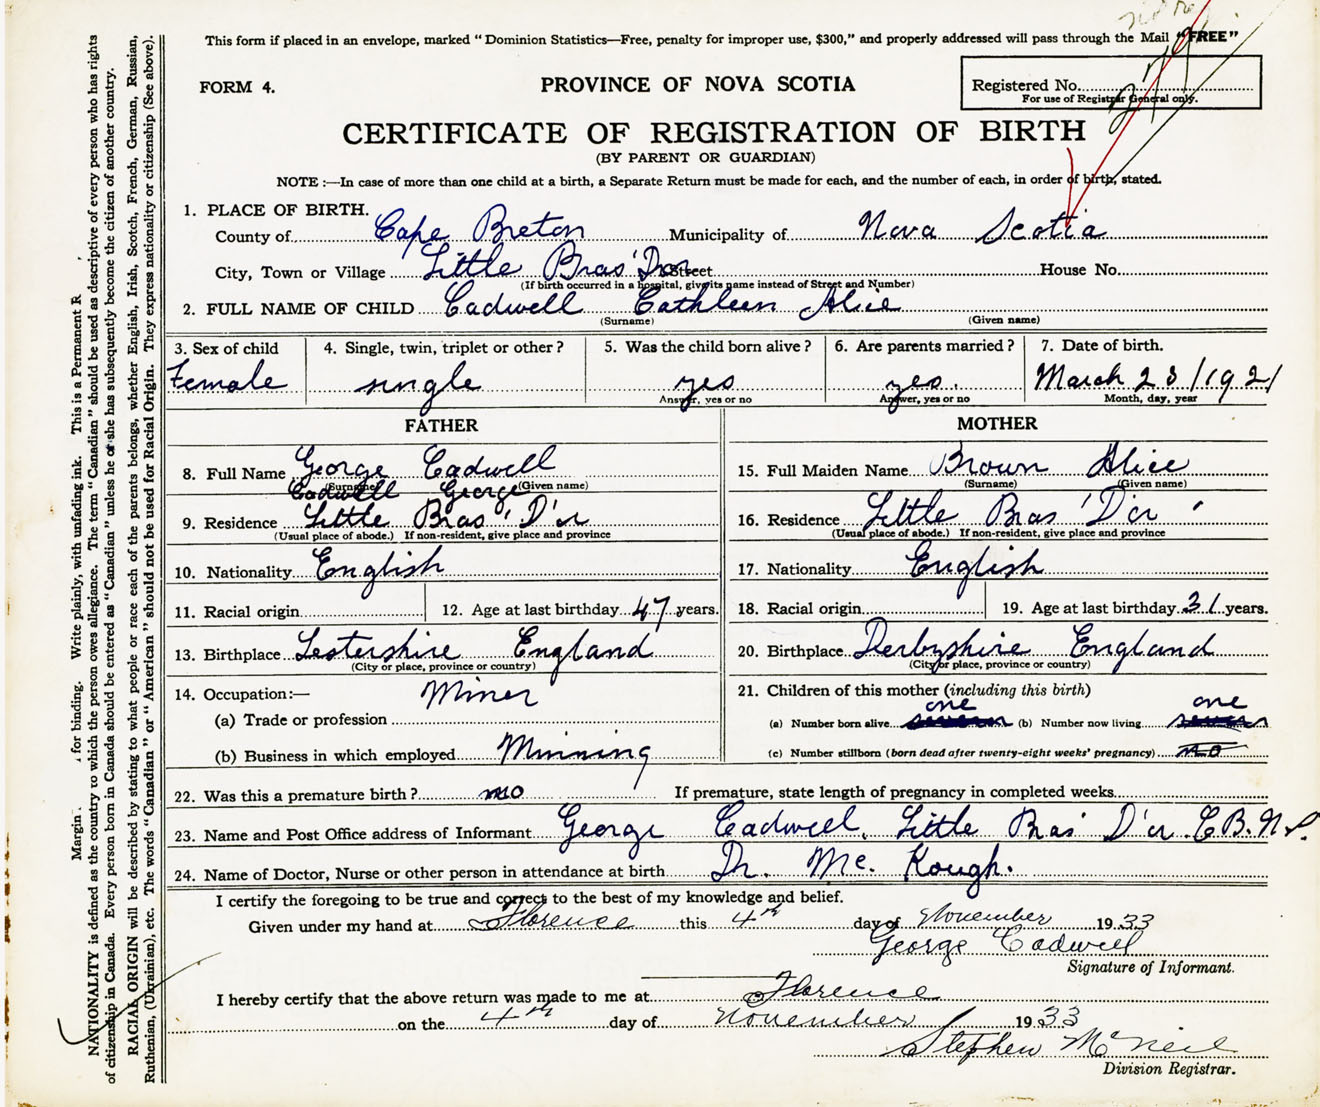 This form if placed in an envelope, marked "Dominion Statistics—Free, penalty for improper use, $300," and properly addressed will pass through the Mail "FREE"
FORM 4.
PROVINCE OF NOVA SCOTIA
Registered No.
For use of Registrar General only.
CERTIFICATE OF REGISTRATION OF BIRTH
(BY PARENT OR GUARDIAN)
NOTE :—In case of more than one child at a birth, a Separate Return must be made for each, and the number of each, in order of birth, stated.
1. PLACE OF BIRTH.
County of Cape Breton Municipality of Nova Scotia
City, Town or Village Little Bras D'or Street House No.
(If birth occurred in a hospital, give its name instead of Street and Number)
2. FULL NAME OF CHILD Cadwell Cathleen Alice
(Surname) (Given name)
3. Sex of child 4. Single, twin, triplet or other ? 5. Was the child born alive ? 6. Are parents married ? 7. Date of birth.
Female single yes yes. March 23/1921
Answer, yes or no Answer, yes or no Month, day, year
FATHER MOTHER
8. Full Name George Cadwell 15. Full Maiden Name Brown Alice
(Surname) (Given name) (Surname) (Given name)
Cadwell George
9. Residence Little Bras' D'or 16. Residence Little Bras 'D'or
(Usual place of abode.) If non-resident, give place and province (Usual place of abode.) If non-resident, give place and province
10. Nationality English 17. Nationality English
11. Racial origin 12. Age at last birthday 47 years. 18. Racial origin 19. Age at last birthday 31 years.
13. Birthplace Lestershire England 20. Birthplace Derbyshire England
(City or place, province or country) (City or place, province or country)
14. Occupation:— Miner 21. Children of this mother (including this birth)
one one
(a) Trade or profession (a) Number born alive seven (b) Number now living seven
(b) Business in which employed Minning (c) Number stillborn (born dead after twenty-eight weeks' pregnancy) no
22. Was this a premature birth ? no If premature, state length of pregnancy in completed weeks
23. Name and Post Office address of Informant George Cadwell, Little Bras D'or C.B. N.S.
24. Name of Doctor, Nurse or other person in attendance at birth Dr. Mc. Kough.
I certify the foregoing to be true and correct to the best of my knowledge and belief.
Given under my hand at Florence this 4th day of November 1933
George Cadwell
Signature of Informant.
I hereby certify that the above return was made to me at Florence
on the 4th day of November 1933
Stephen McNeil
Division Registrar.
Margin for binding. Write plainly, with unfading ink. This is a Permanent R
NATIONALITY is defined as the country to which the person owes allegiance. The term "Canadian" should be used as descriptive of every person who has rights
of citizenship in Canada. Every person born in Canada should be entered as "Canadian" unless he or she has subsequently become the citizen of another country.
RACIAL ORIGIN will be described by stating to what people or race each of the parents belongs, whether English, Irish, Scotch, French, German, Russian,
Ruthenian, (Ukrainian), etc. The words "Canadian" or "American" should not be used for Racial Origin. They express nationality or citizenship (See above).